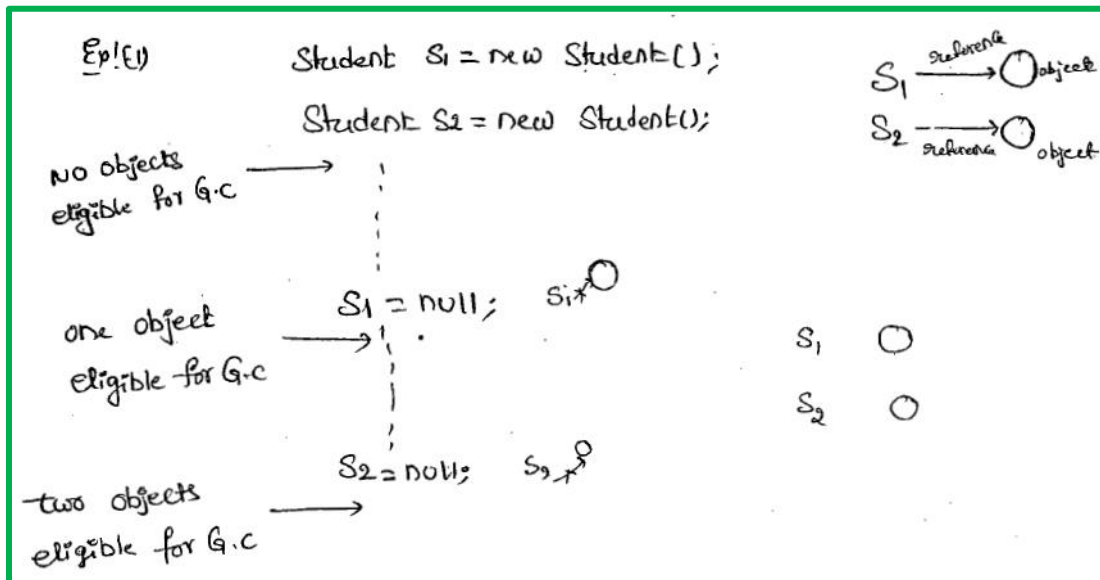 Ex!(1) Student S1 = new Student();
Student S2 = new Student();
S1 reference object
S2 reference object
NO objects
eligible for G.C
S1 = null; S1
one object
eligible for G.C
S1
S2
S2 = null; S2
two objects
eligible for G.C